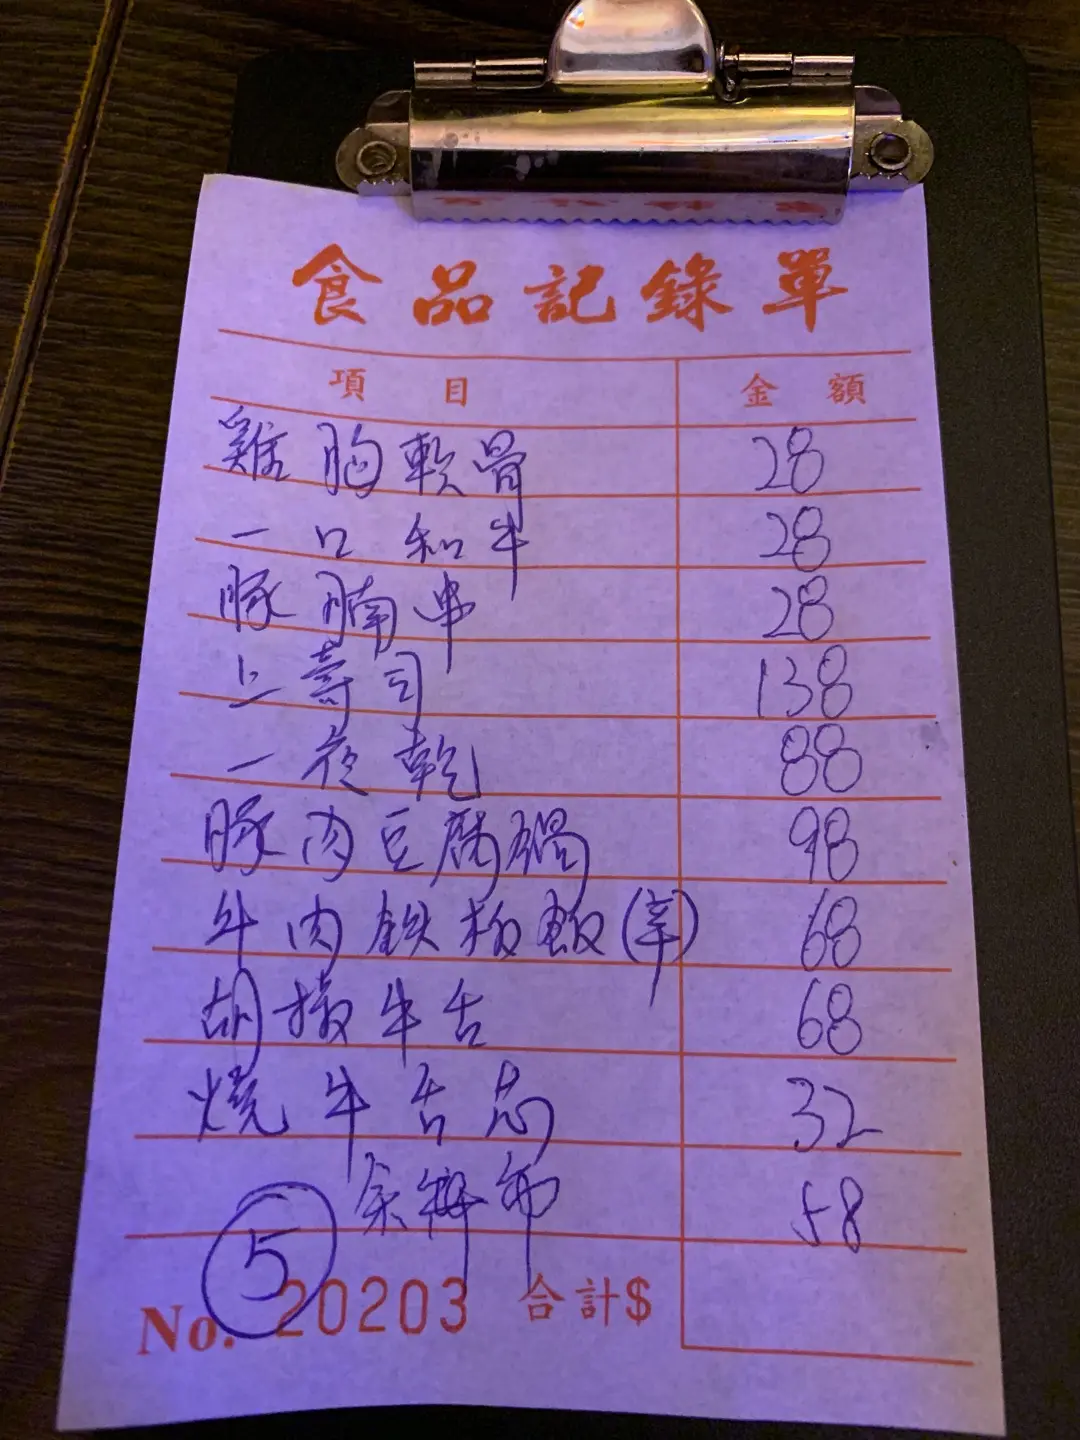 食品記錄單
項目 金額
雞胸軟骨 28
一口和牛 28
豚腩串 28
上壽司 138
一夜乾 88
豚肉豆腐鍋 98
牛肉鉄板飯(辛) 68
胡椒牛舌 68
燒牛舌芯 32
58
⑤
No. 20203 合計$